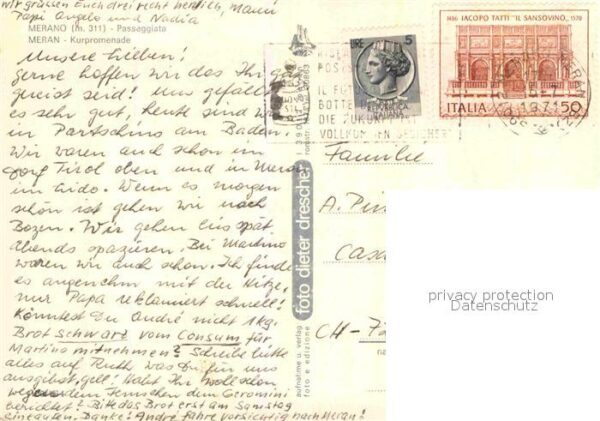 wir grüßen Euch drei recht herzlich, Mami
Papi Angelo und Nadia
MERANO (m. 311) - Passeggiata
MERAN - Kurpromenade
Unsere Lieben!
Gerne hoffen wir das Ihr gut
gereist seid! Uns gefällt
es sehr gut, heute sind wir
in Partschins am Baden.
Wir waren auch schon im
Dorf Tirol oben und in Meran
im Lido. Wenn es morgen
schön ist gehen wir nach
Bozen. Wir gehen bis spät
abends spazieren. Bei Martino
waren wir auch schon. Ich finde
es angenehm mit der Hitze,
nur Papa reklamiert schnell!
Könntest Du André nicht 1kg.
Brot schwarz vom Consum für
Martino mitnehmen? Schreibe bitte
alles auf Ruth was Du für uns
ausgibst, gell! Habt Ihr wohl schon
wegen dem Fernsehen dem Geromini
berichtet? Bitte das Brot erst am Samstag
einkaufen. Danke! André fahre vorsichtig nach Meran!
foto dieter drescher
aufnahme u. verlag
foto e edizione
LIRE 5
1486 IACOPO TATTI "IL SANSOVINO" 1570
ITALIA 50
IL FUTURO
DIE ZUKUNFT
MERAN
18.7
Familie
A.
CH-7
privacy protection
Datenschutz